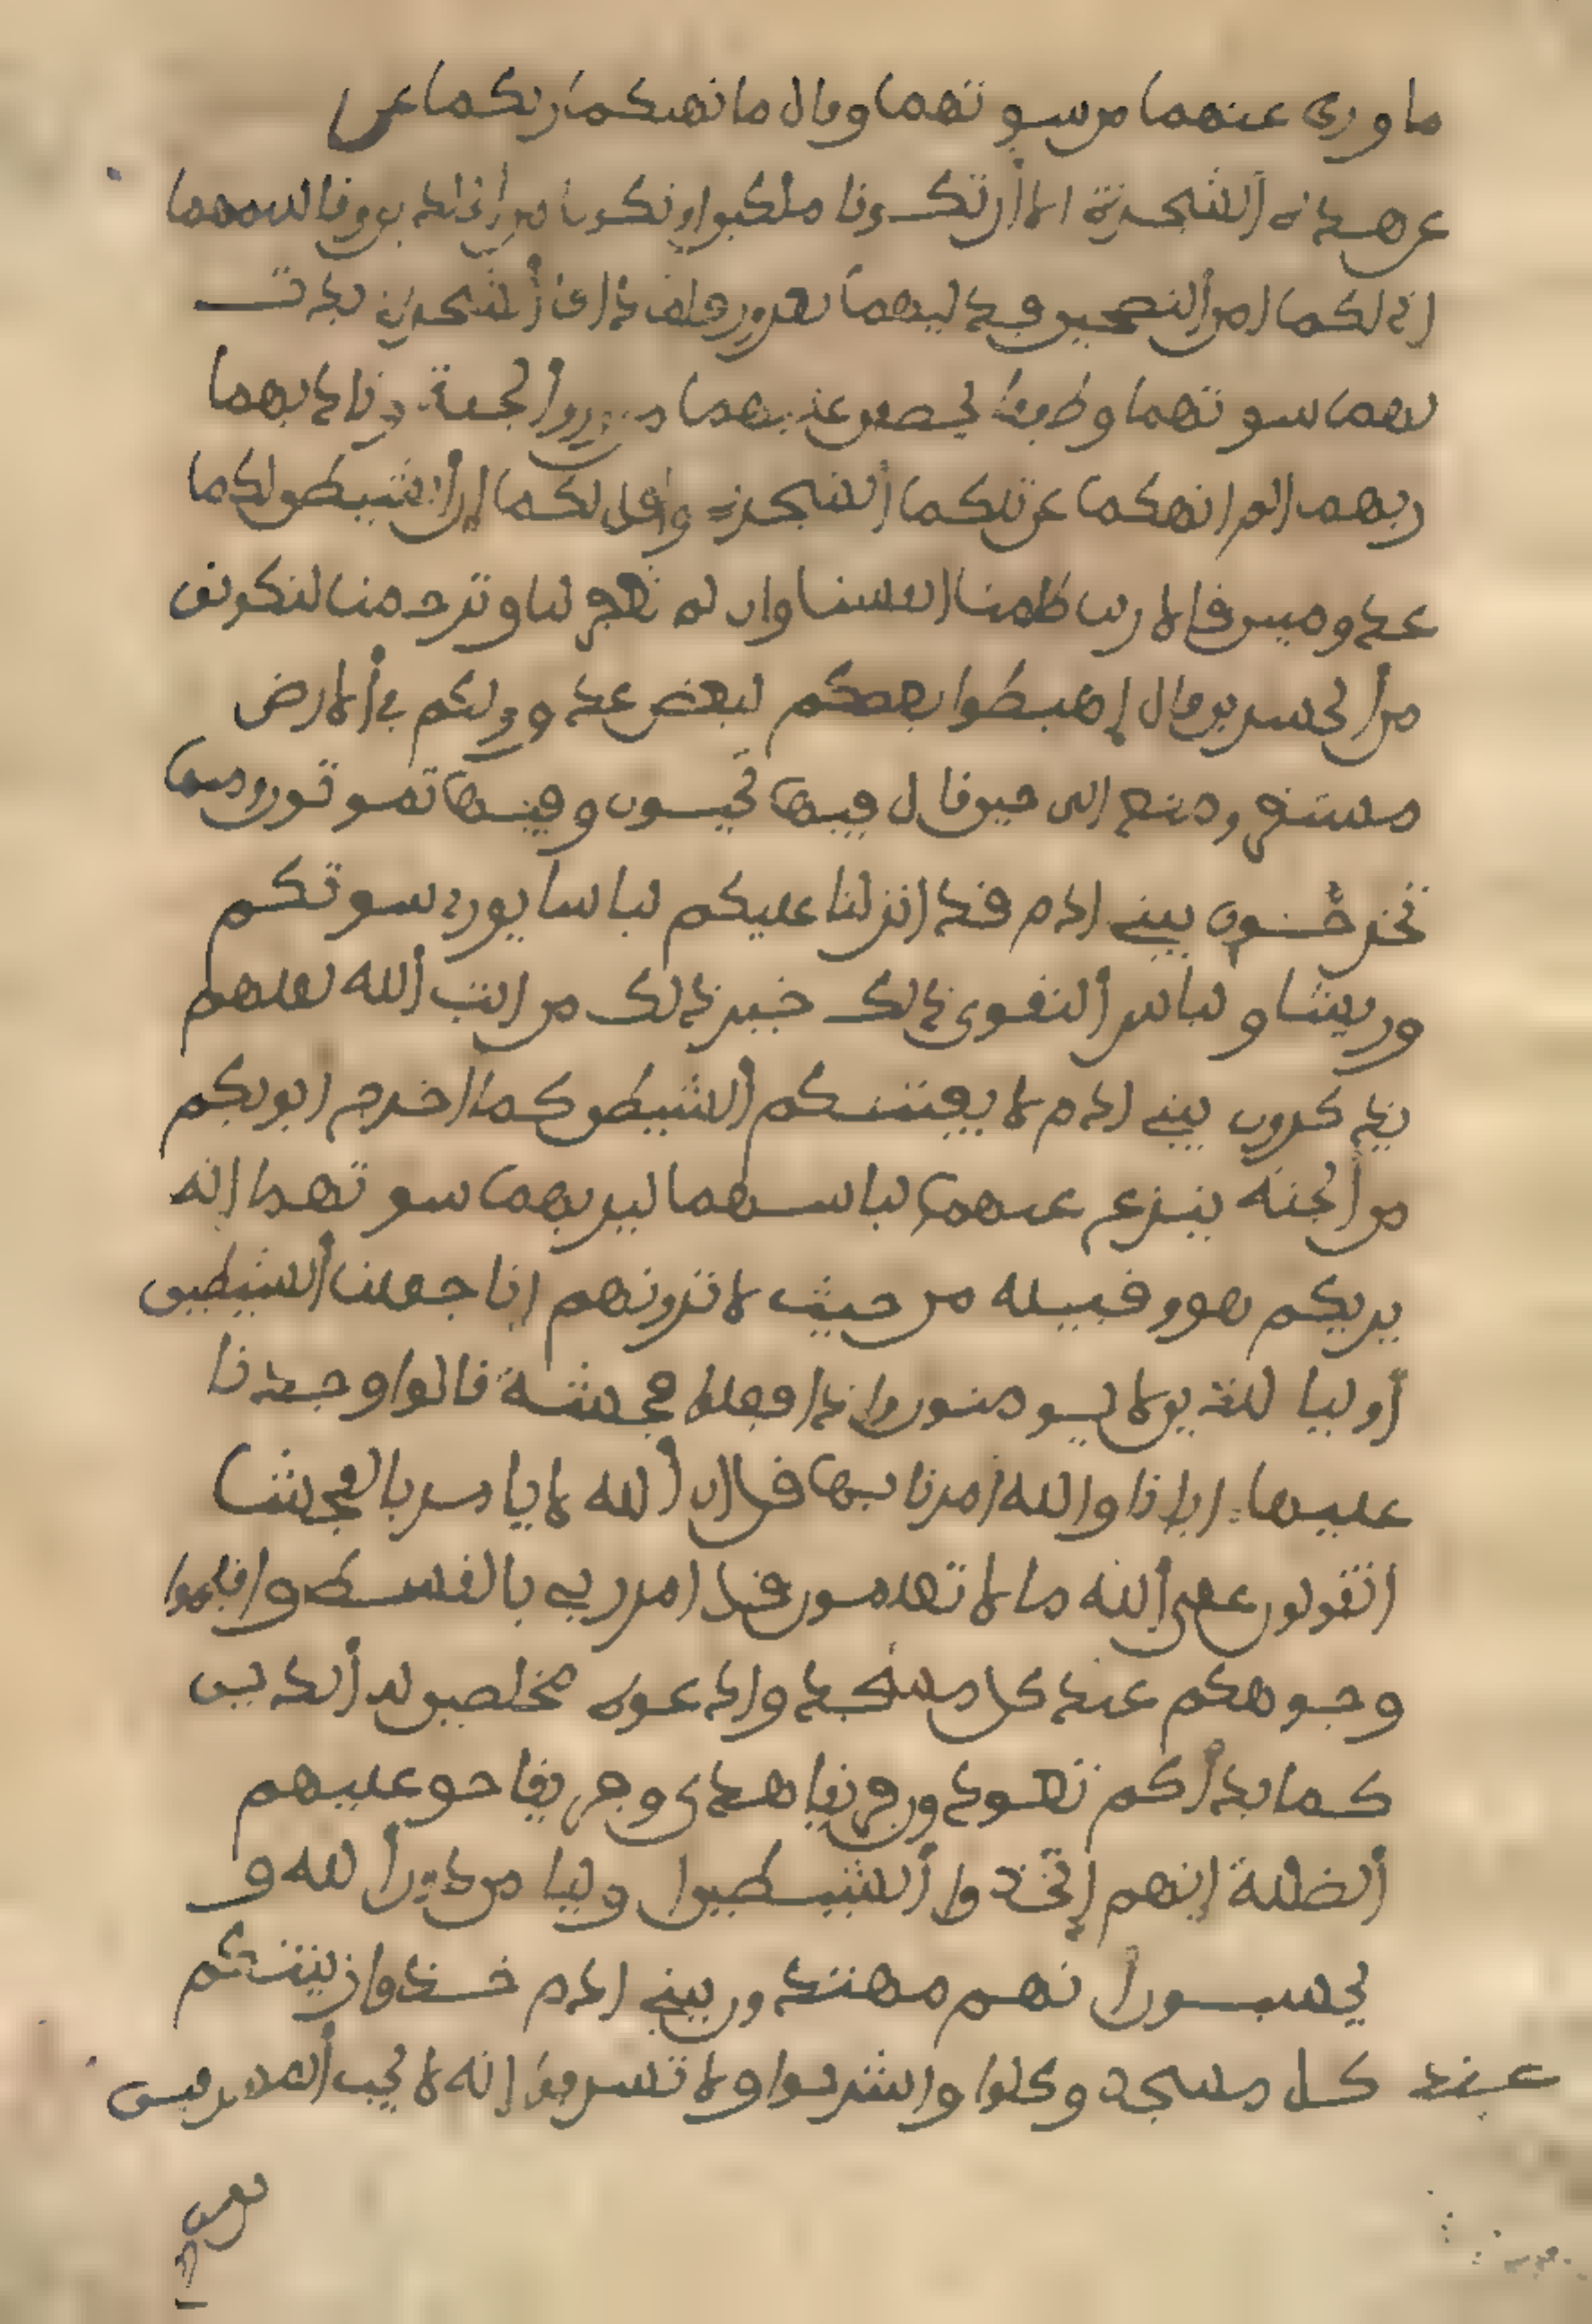 ما وري عنهما من سوتهما وقال ما نهىكما ربكما عن
عن هذه ألشجرة الا أن تكونا ملكين او تكونا من ألخلدين وقاسمهما
اني لكما لمن ألنصحين فدليهما بغرور فلما ذاقا ألشجرة بدت
لهما سوتهما وطفقا يخصفن عليهما من ورق ألجنة وناديهما
ربهما الم انهكما عن تلكما ألشجرة واقل لكما إن ألشيطن لكما
عدو مبين قالا ربنا ظلمنا انفسنا وان لم تغفر لنا وترحمنا لنكونن
من ألخسرين قال إهبطوا بعضكم لبعض عدو ولكم في ألارض
مستقر ومتع الى حين قال فيها تحيون وفيها تموتون ومنها
تخرجون يبني ادم قد انزلنا عليكم لباسا يوري سوتكم
وريشا ولباس ألتقوى ذلك خير ذلك من ايت ألله لعلهم
يذكرون يبني ادم لا يفتننكم ألشيطن كما اخرج ابويكم
من ألجنة ينزع عنهما لباسهما ليريهما سوتهما انه
يريكم هو وقبيله من حيث لا ترونهم انا جعلنا ألشيطين
أوليا للذين لا يومنون واذا فعلوا فحشة قالوا وجدنا
عليها ابانا والله أمرنا بها قل ان ألله لا يامر بالفحشا
اتقولون على ألله ما لا تعلمون قل امر ربي بالقسط واقيموا
وجوهكم عند كل مسجد وادعوه مخلصين له ألدين
كما بدأكم تعودون فريقا هدى وفريقا حق عليهم
ألضللة إنهم إتخذوا ألشيطين اوليا من دون ألله و
يحسبون انهم مهتدون يبني ادم خذوا زينتكم
عند كل مسجد وكلوا واشربوا ولا تسرفوا إنه لا يحب ألمسرفين